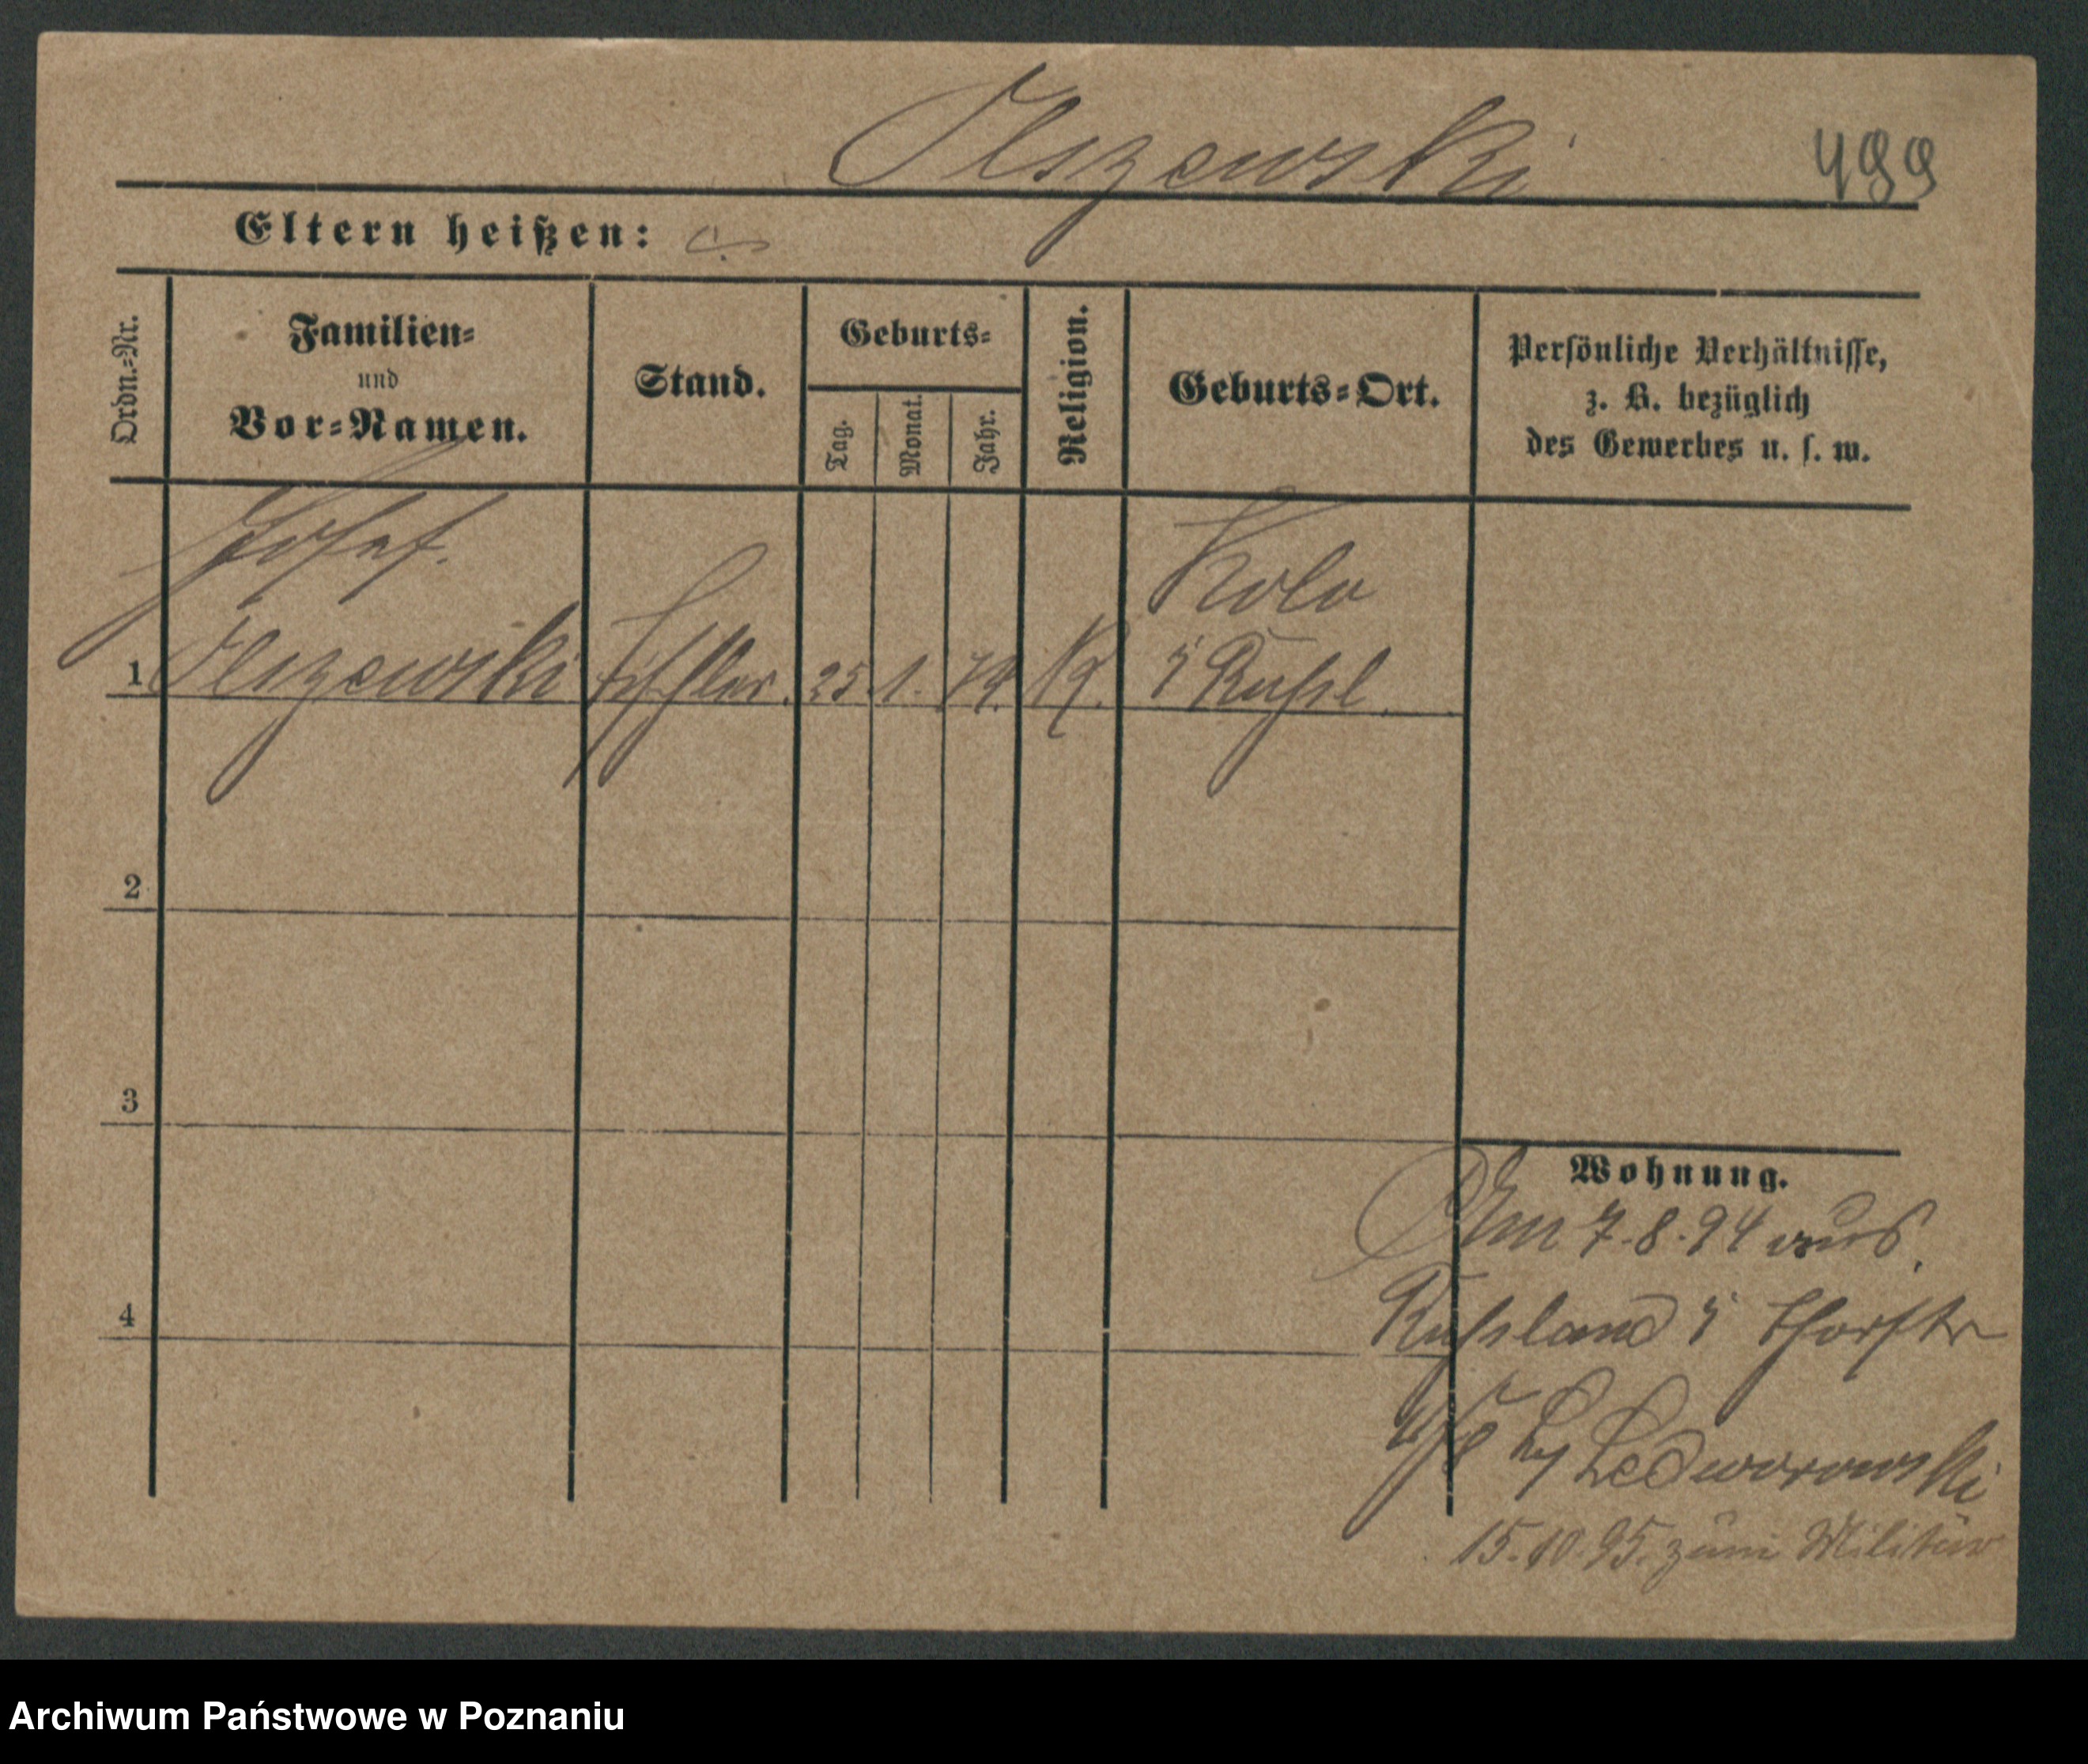 Olszewski
499
Eltern heißen:
Ordn.=Nr.
Familien=
und
Vor=Namen.
Stand.
Geburts=
Tag.
Monat.
Jahr.
Religion.
Geburts=Ort.
Persönliche Verhältnisse,
z. B. bezüglich
des Gewerbes u. s. w.
Josef
Olszewski
Tischler.
25. 1. 74.
K.
Kolo
i Rußl.
1
2
3
4
Wohnung.
7.8.94 aus
Russland i Thorstr
by Ledworowski
15.10.95. zum Militär
Archiwum Państwowe w Poznaniu